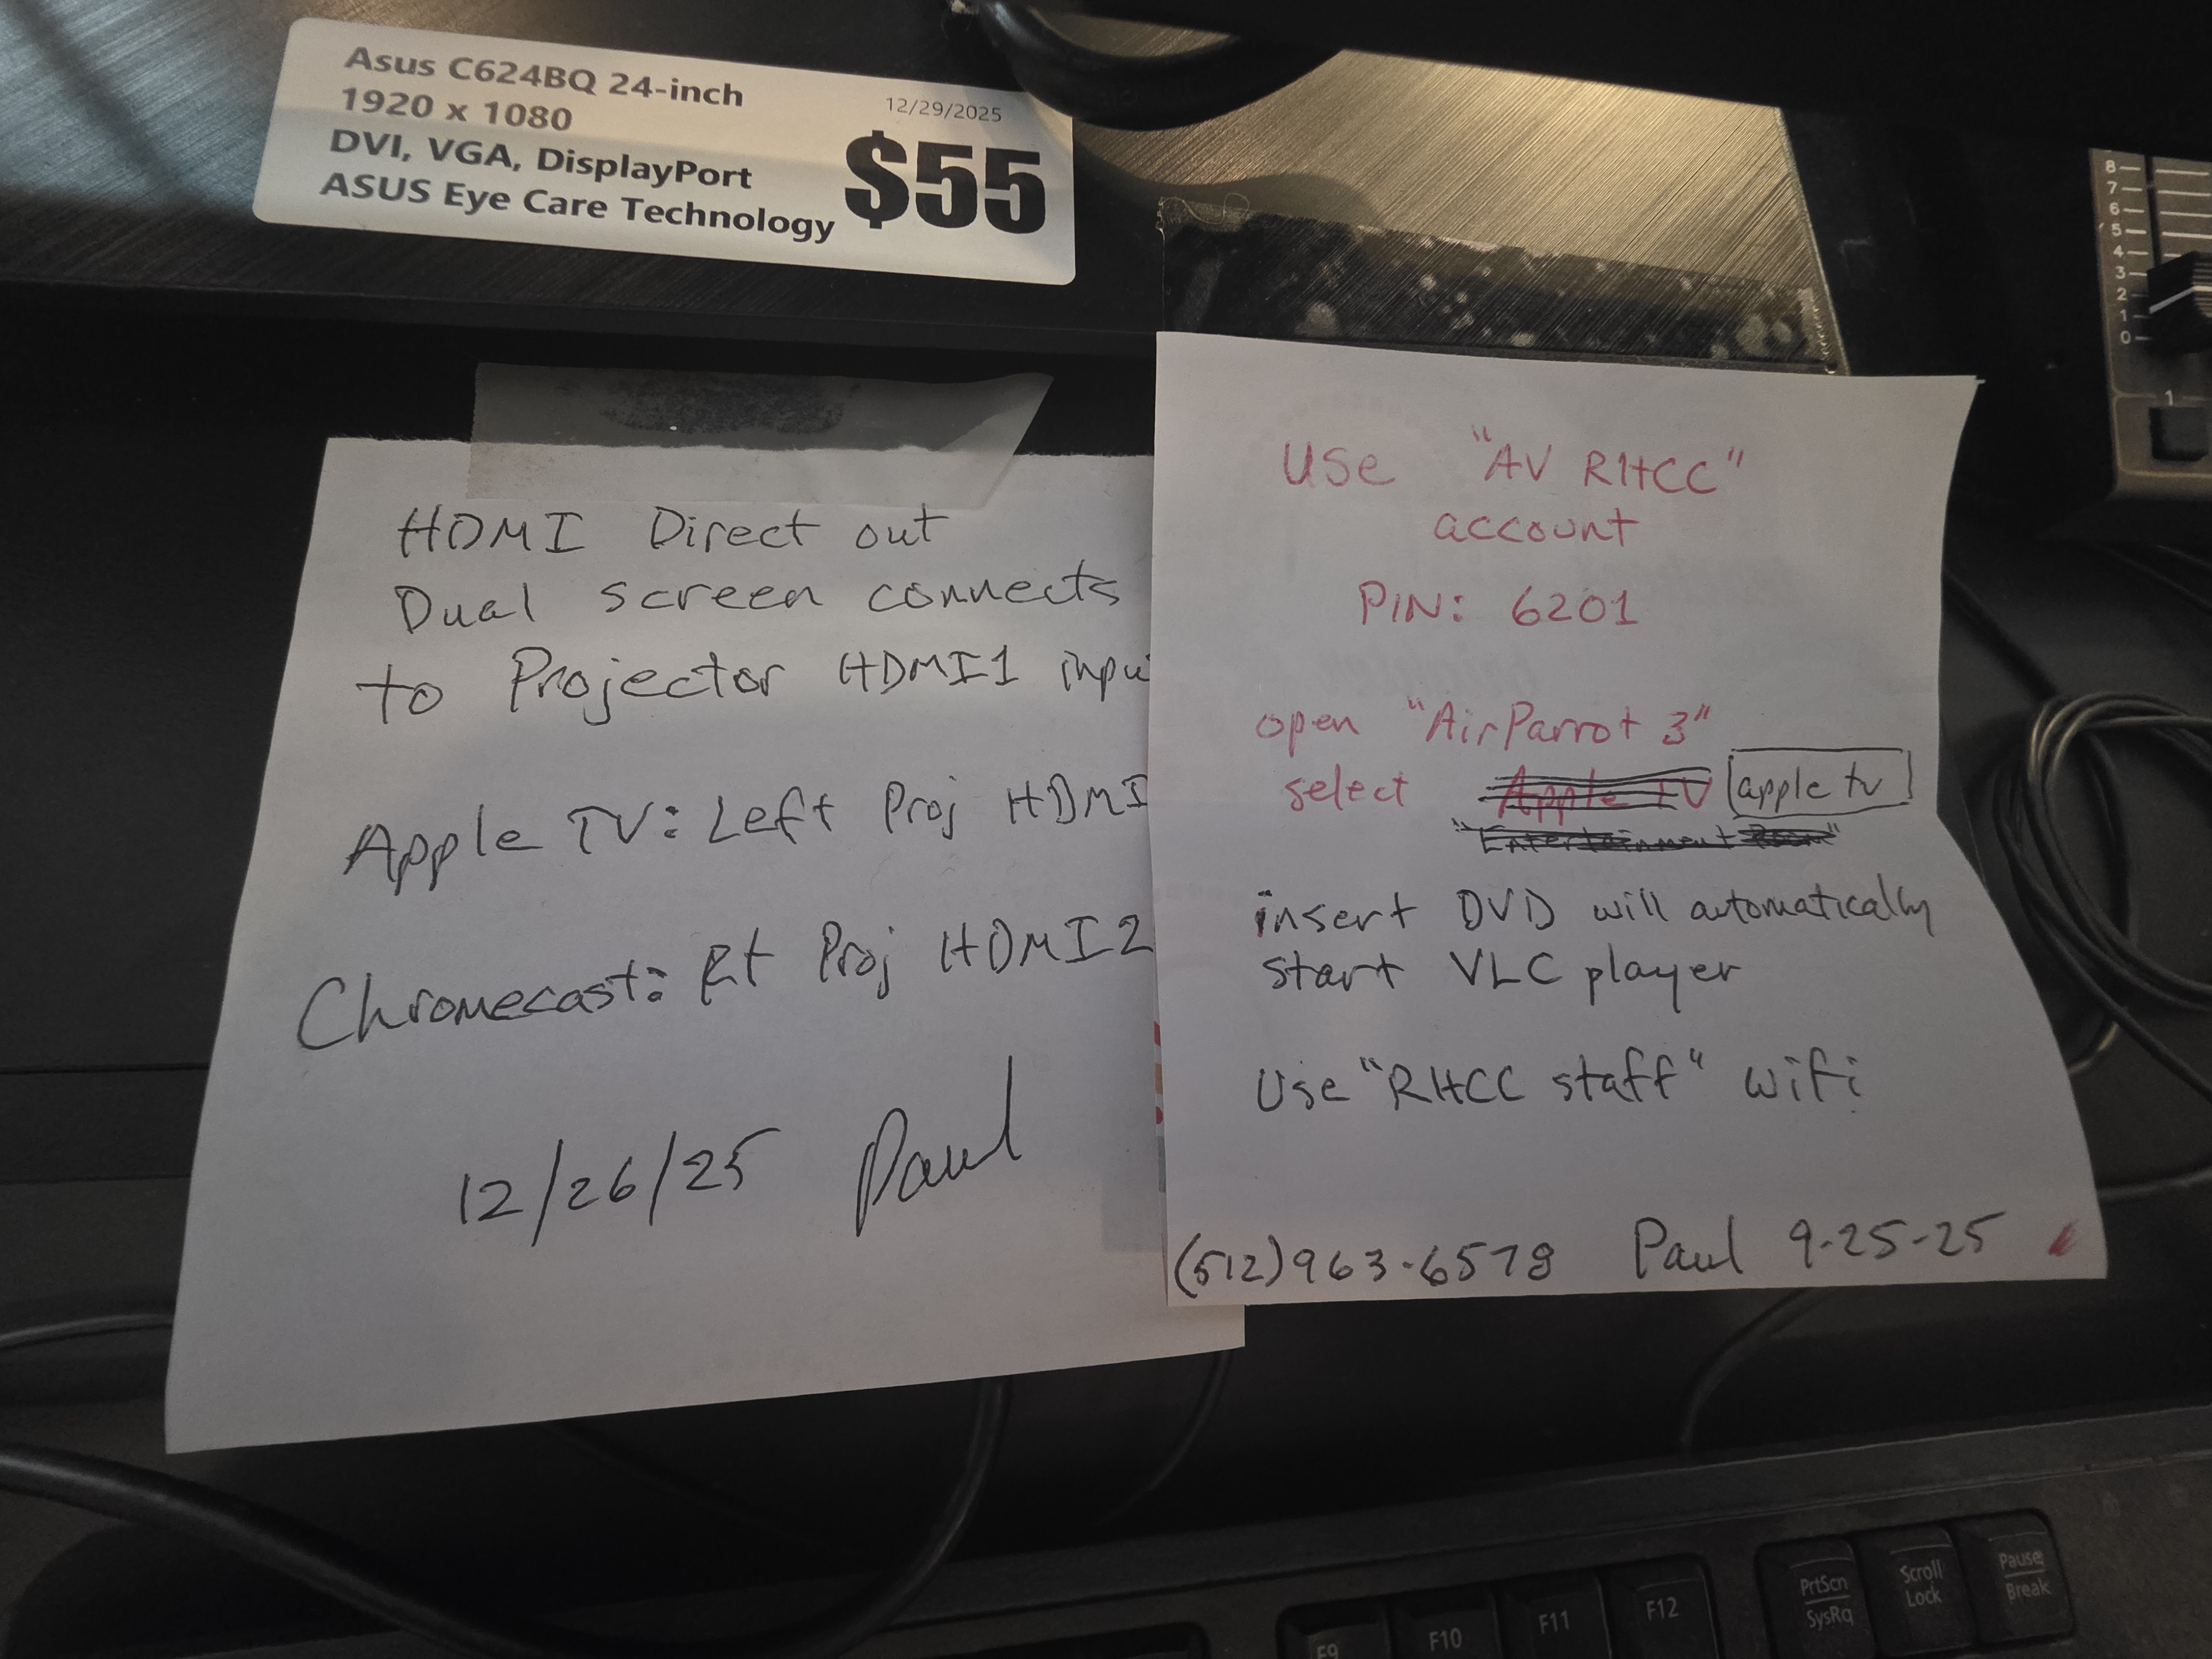 Asus C624BQ 24-inch
1920 x 1080
DVI, VGA, DisplayPort
ASUS Eye Care Technology
12/29/2025
$55
HDMI Direct out
Dual screen connects
to Projector HDMI1 inpu
Apple TV: Left Proj HDMI
Chromecast: Rt Proj HDMI2
12/26/25 Paul
Use "AV RHCC"
account
PIN: 6201
open "AirParrot 3"
select Apple TV apple tv
"Entertainment Room"
insert DVD will automatically
start VLC player
Use "RHCC staff" wifi
(512)963-6578 Paul 9-25-25
8
7
6
5
4
3
2
1
0
1
F9 F10 F11 F12
PrtScn
SysRq
Scroll
Lock
Pause
Break